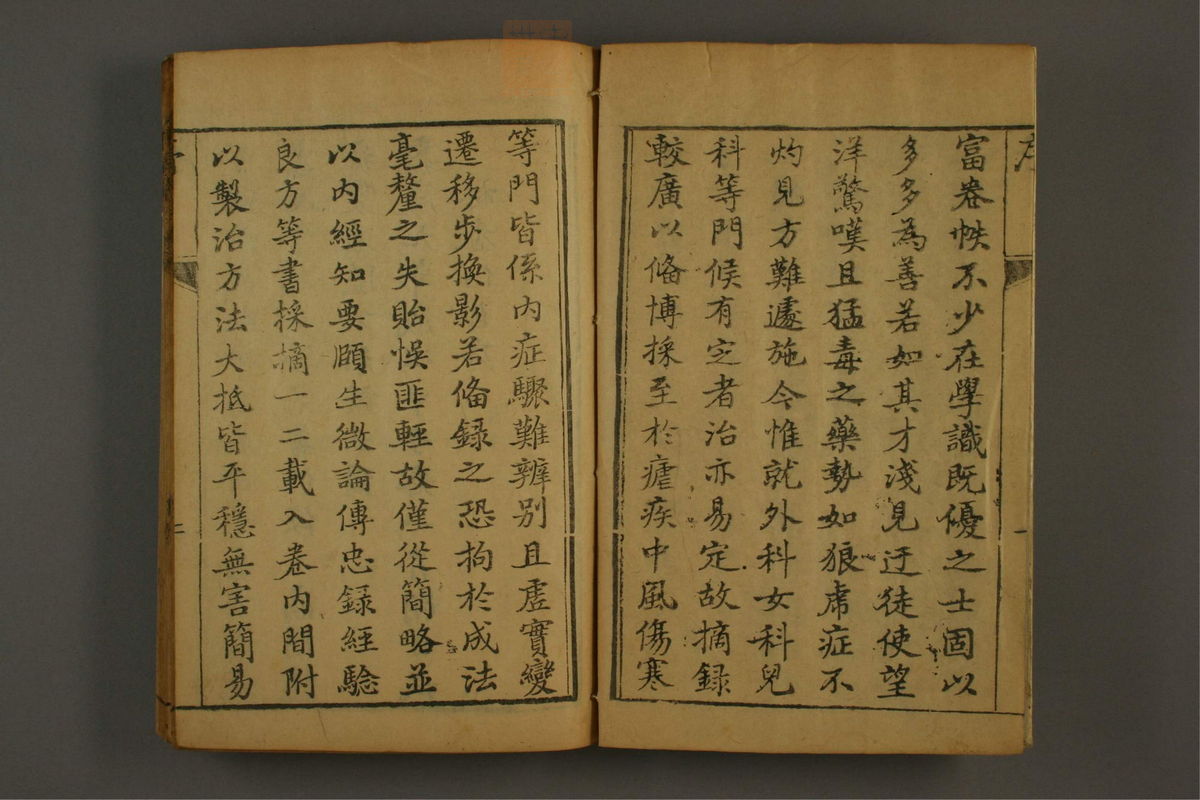 序
富卷帙不少在學識既優之士固以
多多為善若如其才淺見迂徒使望
洋驚嘆且猛毒之藥勢如狼虎症不
灼見方難遽施今惟就外科女科兒
科等門候有定者治亦易定故摘錄
較廣以備博採至於瘧疾中風傷寒
等門皆係內症驟難辨別且虛實變
遷移步換影若備錄之恐拘於成法
毫釐之失貽悞匪輕故僅從簡略並
以內經知要頤生微論傳忠錄經驗
良方等書採摘一二載入卷內間附
以製治方法大抵皆平穩無害簡易